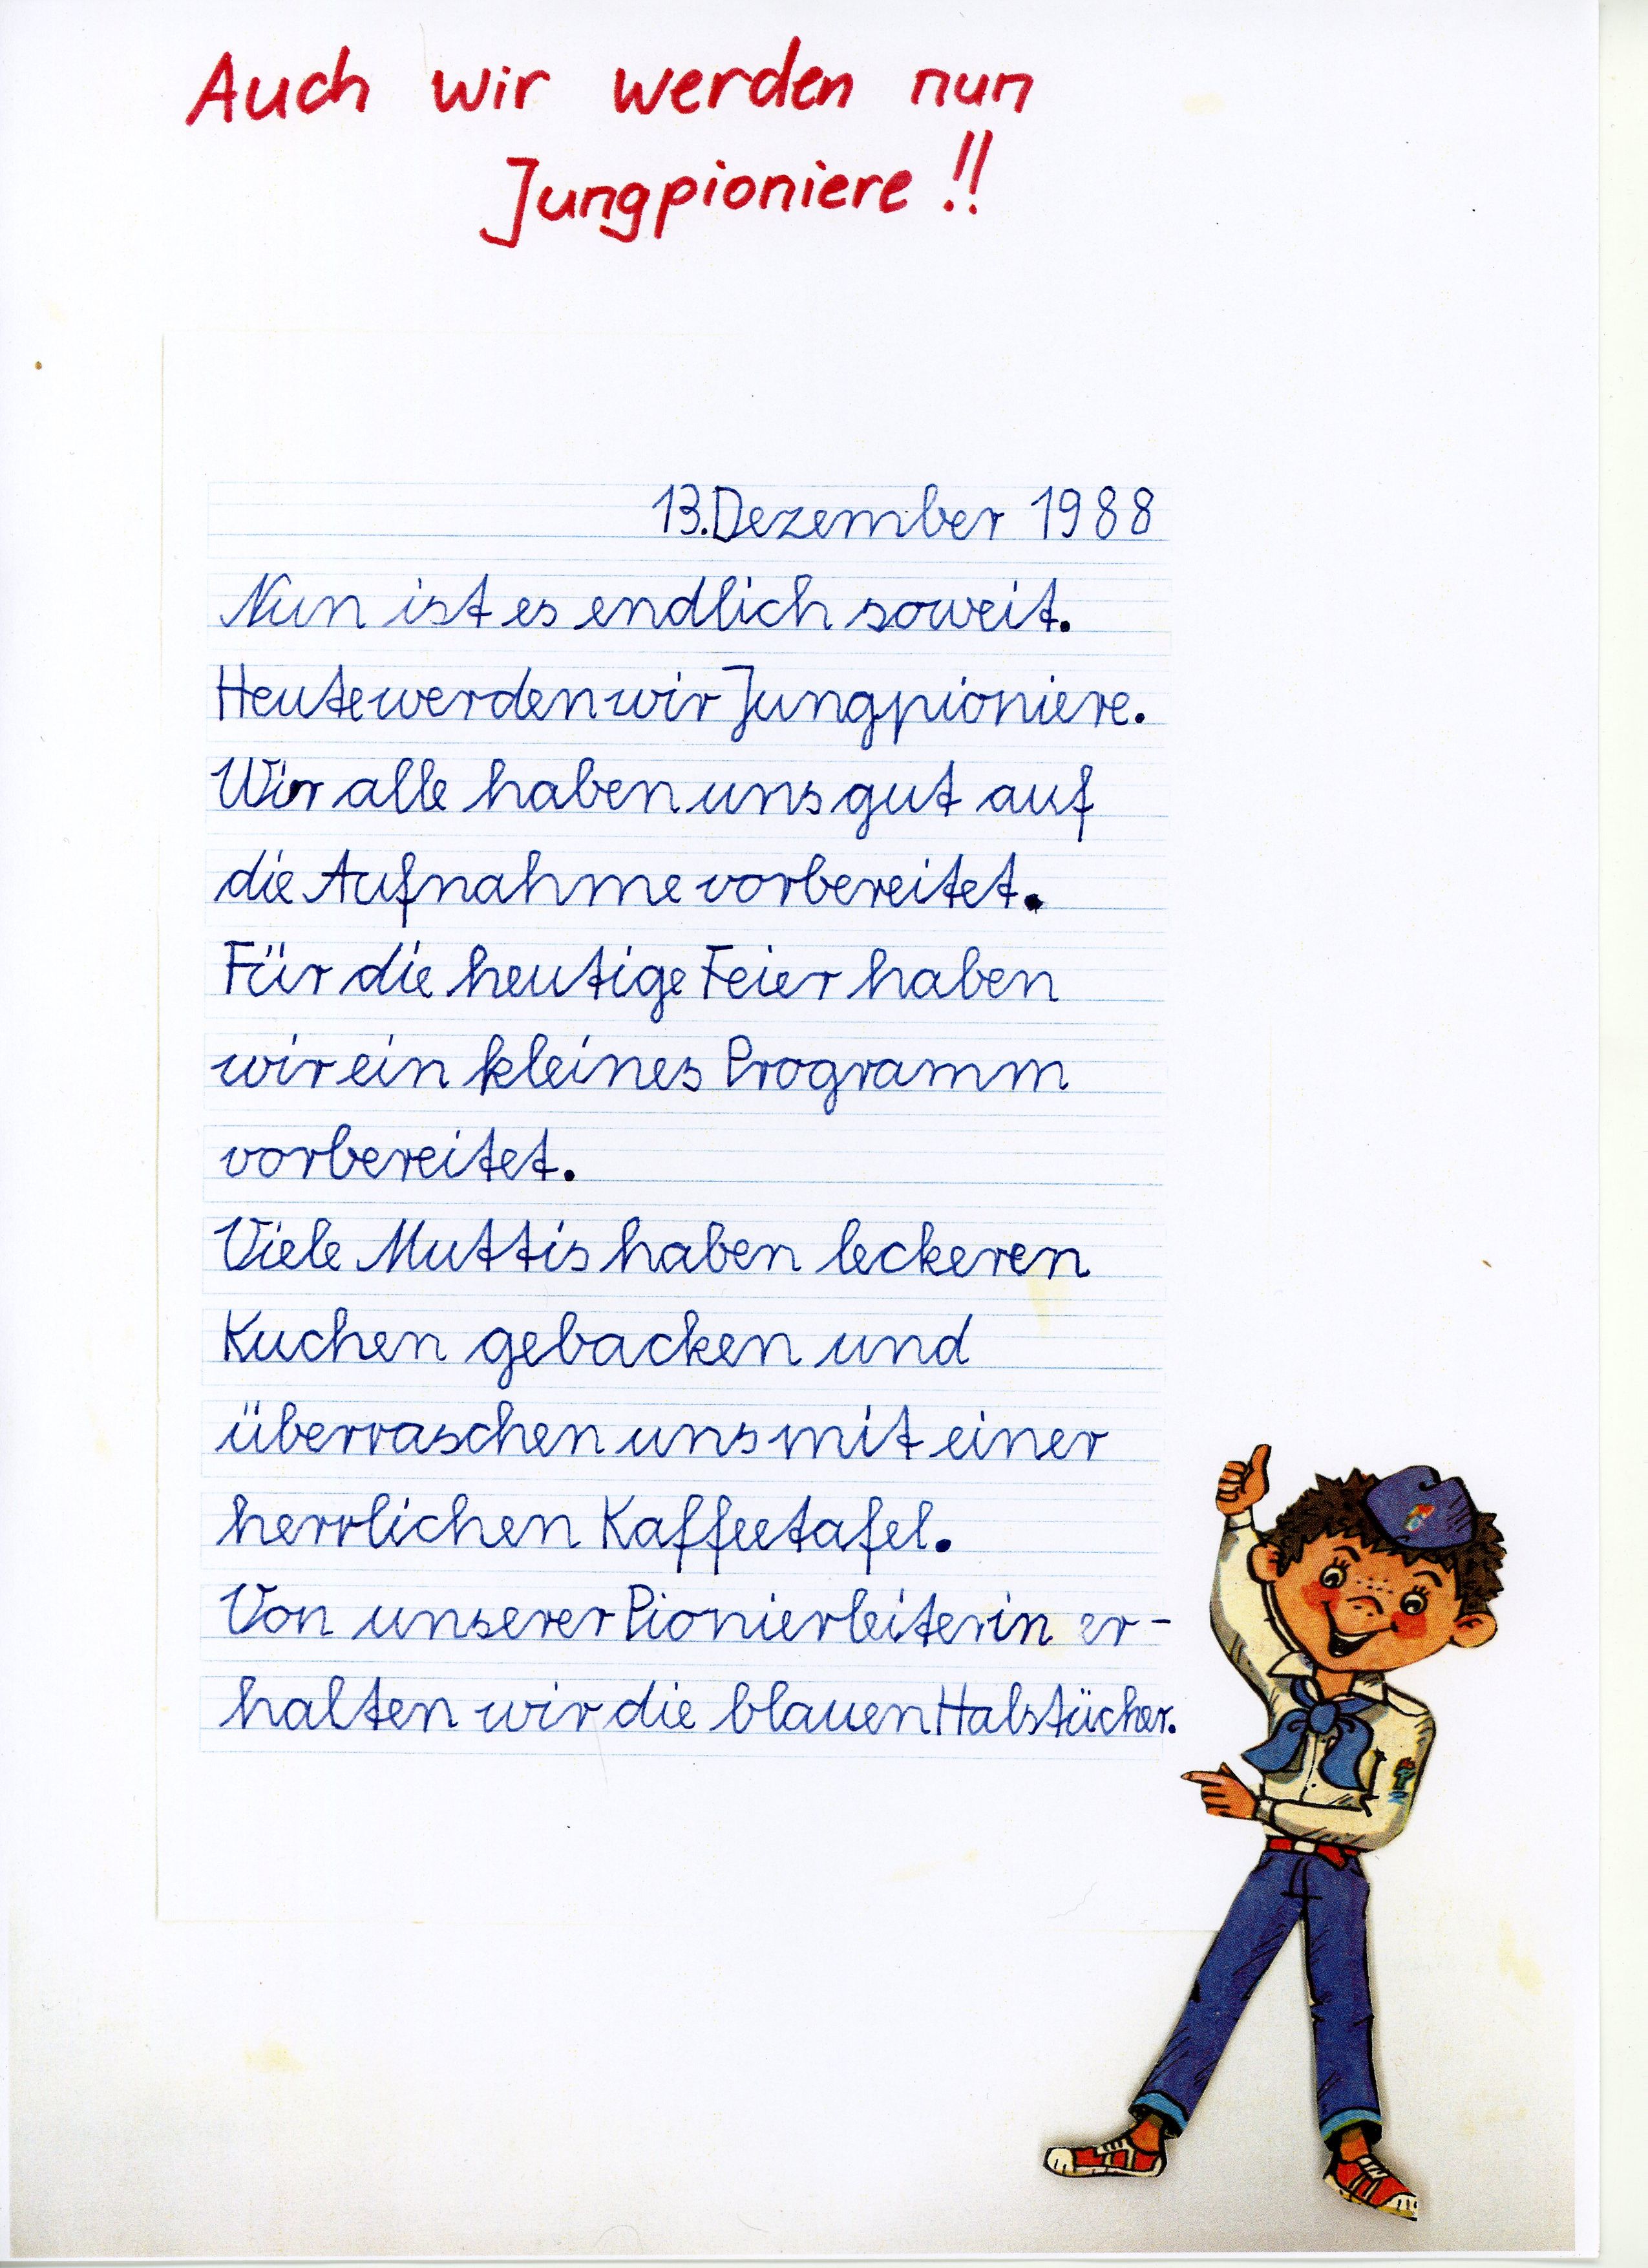 Auch wir werden nun
Jungpioniere!!
13. Dezember 1988
Nun ist es endlich soweit.
Heute werden wir Jungpioniere.
Wir alle haben uns gut auf
die Aufnahme vorbereitet.
Für die heutige Feier haben
wir ein kleines Programm
vorbereitet.
Viele Muttis haben leckeren
Kuchen gebacken und
überraschen uns mit einer
herrlichen Kaffeetafel.
Von unserer Pionierleiterin er-
halten wir die blauen Halstücher.